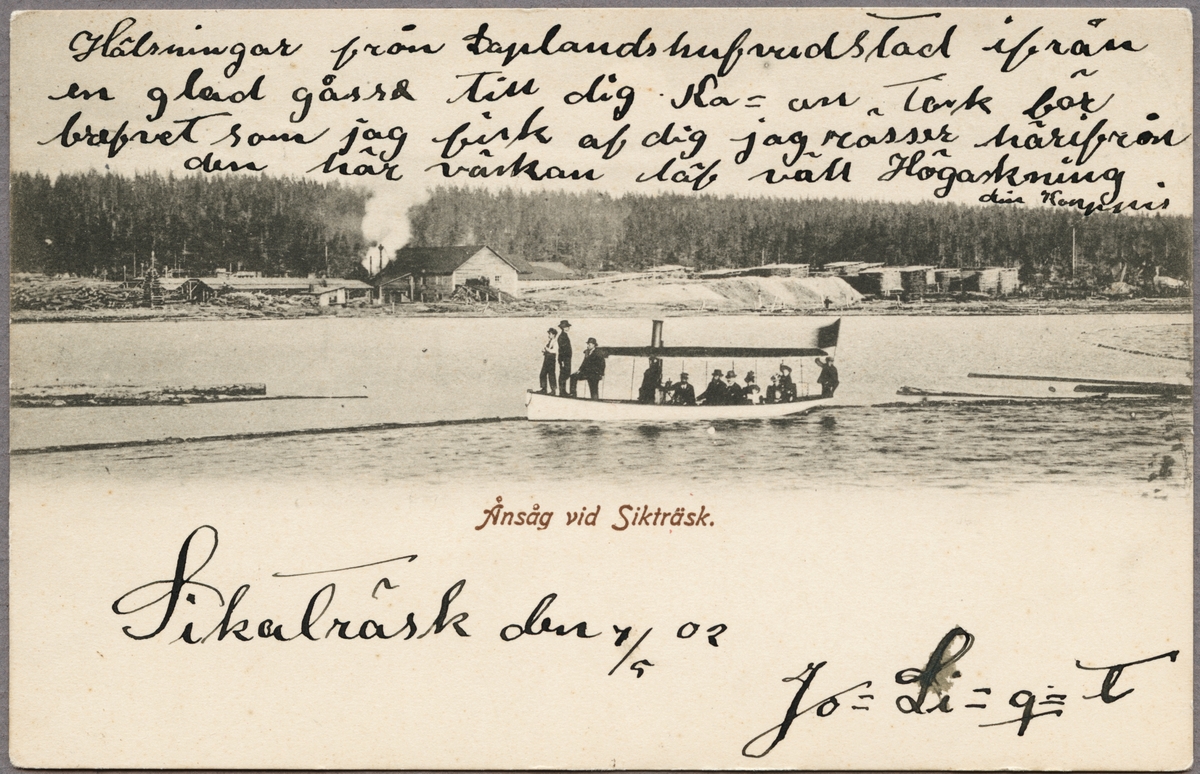 Hälsningar från Laplandshufvudstad ifrån
en glad gåsse till dig Ka = an Tack för
brefvet som jag fick af dig jag rässer härifrån
den här väckan läf väll Högacktning
din Kamppis
Ånsåg vid Sikträsk.
Sikaträsk den 7/5 02
Jo = Li = q = t